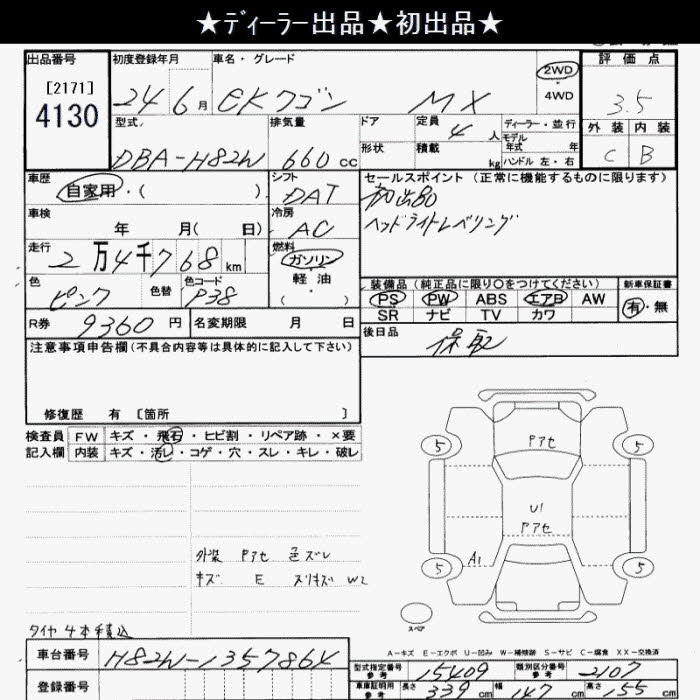 ★ディーラー出品★初出品★
出品番号 初度登録年月 車名・グレード 2WD 評価点
[2171] 24 6月 EKワゴン MX 4WD 3.5
4130 型式 排気量 ドア 定員 4 人 ディーラー・並行 外装 内装
モデル年式 年
DBA-H82W 660cc 形状 積載 kg ハンドル 左・右 C B
車歴 シフト セールスポイント (正常に機能するものに限ります)
自家用・( ) DAT
車検 冷房 ヘッドライトレベリング
年 月( 日) AC
走行 燃料
2万4千768km ガソリン
軽油
色 色替 色コード ( ) 装備品 (純正品に限り○をつけてください) 新車保証書
ピンク P38 PS PW ABS エアB AW 有・無
SR ナビ TV カワ
R券 9360円 名変期限 月 日 後日品
注意事項申告欄(不具合内容等は具体的に記入して下さい) 保 取
修復歴 有 [箇所 ]
検査員 FW キズ・飛石・ヒビ割・リペア跡・×要
記入欄 内装 キズ・汚レ・コゲ・穴・スレ・キレ・破レ
5 Pアセ 5
U1
Pアセ
外装 Pアセ 色ズレ
A1
キズ E スリキズ W2
5 5
スペア
タイヤ4本積込
A-キズ E-エクボ U-凹み W-補修跡 S-サビ C-腐食 XX-交換済
車台番号 H82W-1357864
型式指定番号 参考 15409 類別区分番号 参考 2107
登録番号 車庫証明用 参考 長さ 339cm 幅 147cm 高さ 155cm